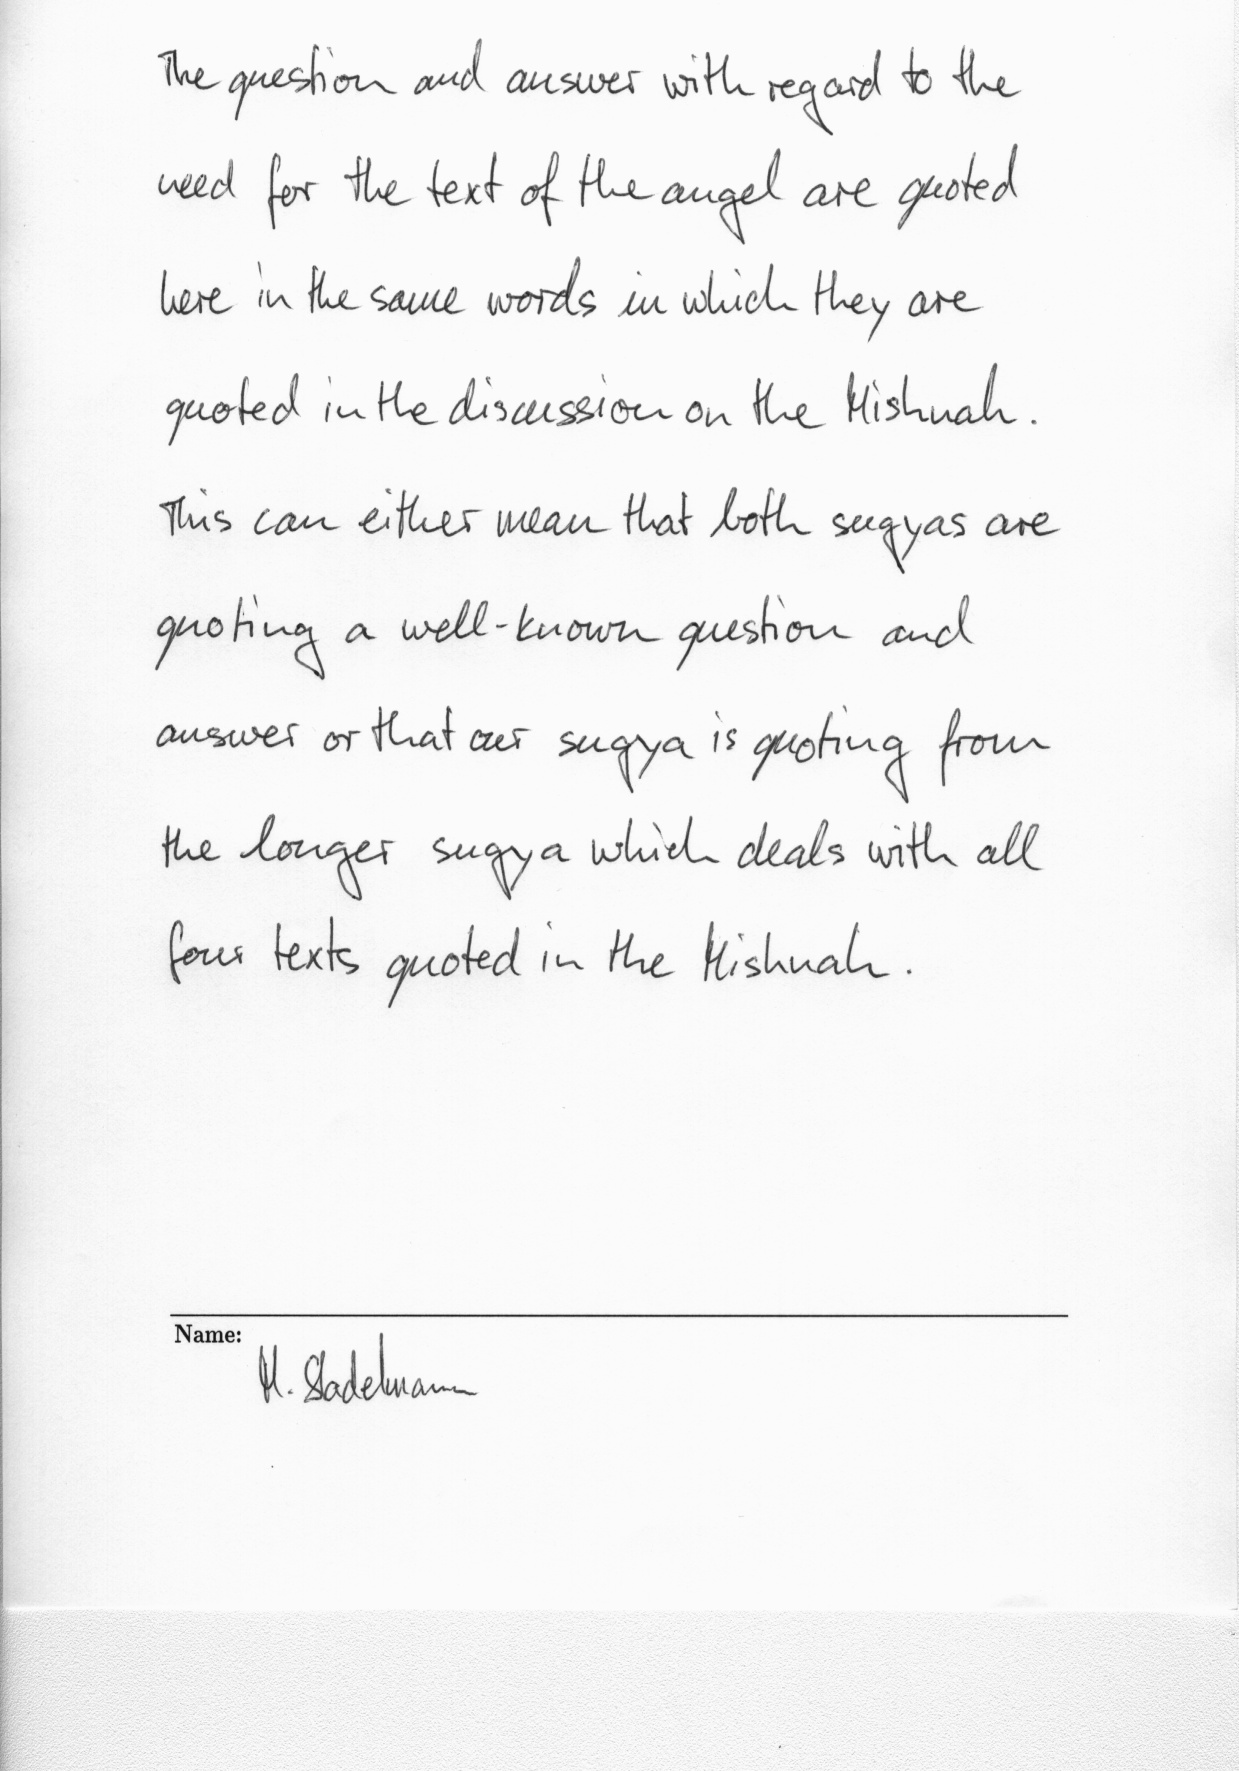 The question and answer with regard to the
need for the text of the angel are quoted
here in the same words in which they are
quoted in the discussion on the Mishnah.
This can either mean that both sugyas are
quoting a well-known question and
answer or that our sugya is quoting from
the longer sugya which deals with all
four texts quoted in the Mishnah.
Name:
M. Stadelmann